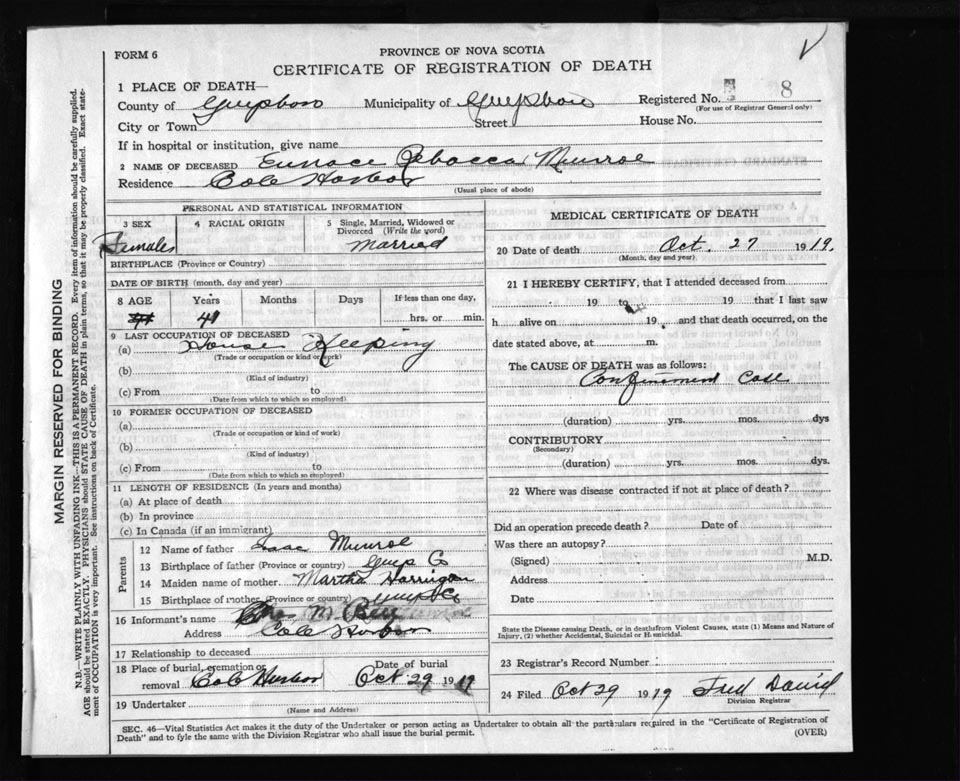 FORM 6
PROVINCE OF NOVA SCOTIA
CERTIFICATE OF REGISTRATION OF DEATH
1 PLACE OF DEATH—
County of Guysboro Municipality of Guysboro Registered No. 8
(For use of Registrar General only)
City or Town Street House No.
If in hospital or institution, give name
2 NAME OF DECEASED Eunace Rebacca Munroe
Residence Cole Harbor
(Usual place of abode)
PERSONAL AND STATISTICAL INFORMATION
3 SEX 4 RACIAL ORIGIN 5 Single, Married, Widowed or Divorced (Write the word)
Females Married
BIRTHPLACE (Province or Country)
DATE OF BIRTH (month, day and year)
8 AGE Years Months Days If less than one day,
41 hrs. or min.
9 LAST OCCUPATION OF DECEASED
(a) House Keeping
(Trade or occupation or kind of work)
(b)
(Kind of industry)
(c) From to
(Date from which to which so employed)
10 FORMER OCCUPATION OF DECEASED
(a)
(Trade or occupation or kind of work)
(b)
(Kind of industry)
(c) From to
(Date from which to which so employed)
11 LENGTH OF RESIDENCE (In years and months)
(a) At place of death
(b) In province
(c) In Canada (if an immigrant)
Parents
12 Name of father Isaac Munroe
13 Birthplace of father (Province or country) Guys Co
14 Maiden name of mother Martha Harrigan
15 Birthplace of mother (Province or country) Guys Co
16 Informant's name M.
Address Cole Harbor
17 Relationship to deceased
18 Place of burial, cremation or removal Cole Harbor Date of burial Oct 29 1919
19 Undertaker
(Name and Address)
MEDICAL CERTIFICATE OF DEATH
20 Date of death Oct. 27 1919.
(Month, day and year)
21 I HEREBY CERTIFY, that I attended deceased from
19 to 19 that I last saw
h alive on 19 and that death occurred, on the
date stated above, at m.
The CAUSE OF DEATH was as follows:
Confinement Case
(duration) yrs. mos. dys
CONTRIBUTORY
(Secondary)
(duration) yrs. mos. dys.
22 Where was disease contracted if not at place of death?
Did an operation precede death? Date of
Was there an autopsy?
(Signed) M.D.
Address
Date
State the Disease causing Death, or in deaths from Violent Causes, state (1) Means and Nature of
Injury, (2) whether Accidental, Suicidal or Homicidal.
23 Registrar's Record Number
24 Filed Oct 29 1919 Fred David
Division Registrar
SEC. 46—Vital Statistics Act makes it the duty of the Undertaker or person acting as Undertaker to obtain all the particulars required in the "Certificate of Registration of
Death" and to fyle the same with the Division Registrar who shall issue the burial permit. (OVER)
MARGIN RESERVED FOR BINDING
N.B.—WRITE PLAINLY WITH UNFADING INK—THIS IS A PERMANENT RECORD. Every item of information should be carefully supplied.
AGE should be stated EXACTLY. PHYSICIANS should STATE CAUSE OF DEATH in plain terms, so that it may be properly classified. Exact state-
ment of OCCUPATION is very important. See instructions on back of Certificate.